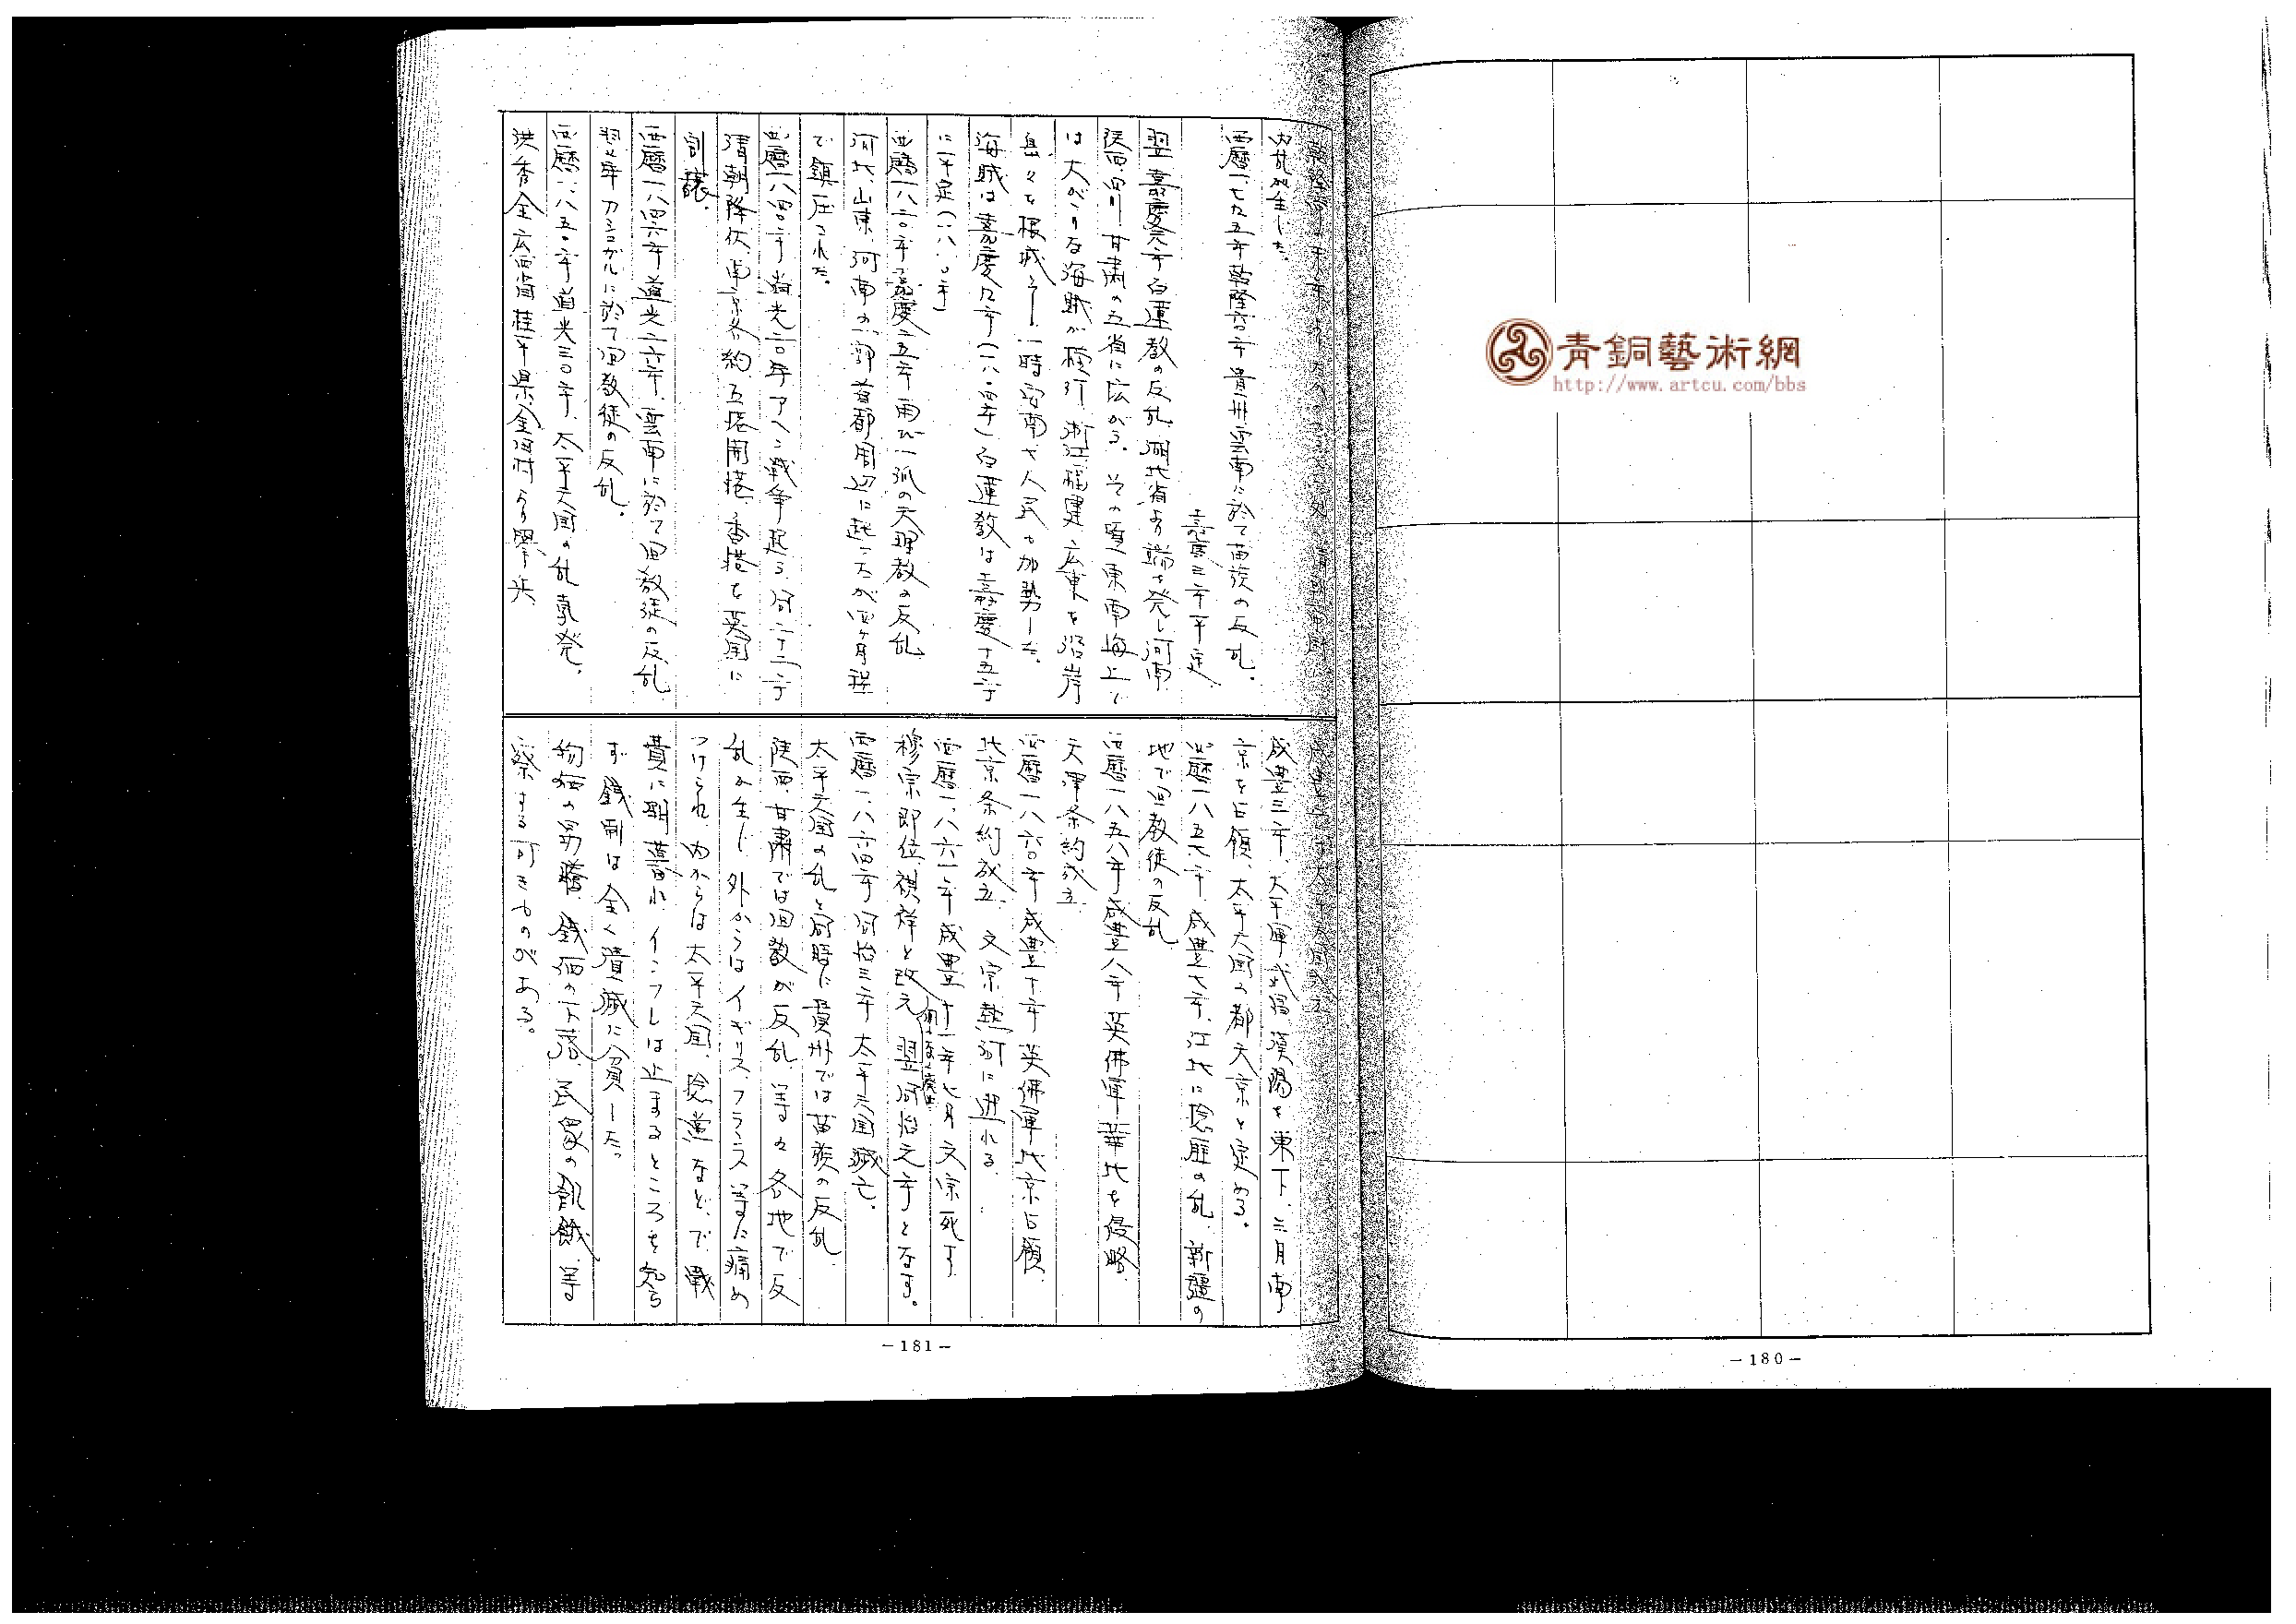 内乱が発生した。
西暦一七九五年乾隆六〇年貴州雲南に於て苗族の反乱。
嘉慶三年平定。
翌嘉慶元年白蓮教の反乱 湖北省より端を発し河南
陝西、四川 甘粛の五省に広がる。その頃東南海上で
は大がかりな海賊が横行 浙江福建 広東を沿岸
島々を根城とし 一時安南や人民も加勢した。
海賊は嘉慶九年(一八〇四年)白蓮教は嘉慶十五年
に平定(一八一〇年)
西暦一八二〇年嘉慶二五年 再び一派の天理教の反乱
河北、山東、河南の一部首都周辺に起ったが四ヶ月程
で鎮圧された。
西暦一八四〇年道光二〇年アヘン戦争起る 同二十二年
清朝降伏、南京条約 五港開港、香港を英国に
割譲、
西暦一八四六年道光二六年、雲南に於て回教徒の反乱
翌年カシュガルに於て回教徒の反乱。
西暦一八五〇年道光三〇年、太平天国の乱勃発、
洪秀全広西省桂平県金田村より挙兵
咸豊三年、太平軍武昌漢陽を東下、三月南
京を占領、太平天国の都天京と定める。
西暦一八五七年咸豊七年、江北に捻匪の乱、新疆の
地で回教徒の反乱
西暦一八五八年咸豊八年英佛軍華北を侵略、
天津条約成立
西暦一八六〇年咸豊十年英佛軍北京占領、
北京条約成立、文宗熱河に逃れる
西暦一八六一年咸豊十一年七月文宗死す
穆宗即位 祺祥と改元 翌同治元年となす。
西暦一八六四年同治三年太平天国滅亡。
太平天国の乱と同時に貴州では苗族の反乱
陝西、甘粛では回教が反乱、等々各地で反
乱が生じ 外からはイギリス、フランス等に痛め
つけられ、内からは太平天国、捻党などで戦
費に明け暮れ、インフレは止まるところを知ら
ず 銭制は全く潰滅に瀕した。
物価の昂騰 銭価の下落、民衆の飢餓、等
察する可きものがある。
－181－
青銅藝術網
http://www.artcu.com/bbs
－180－